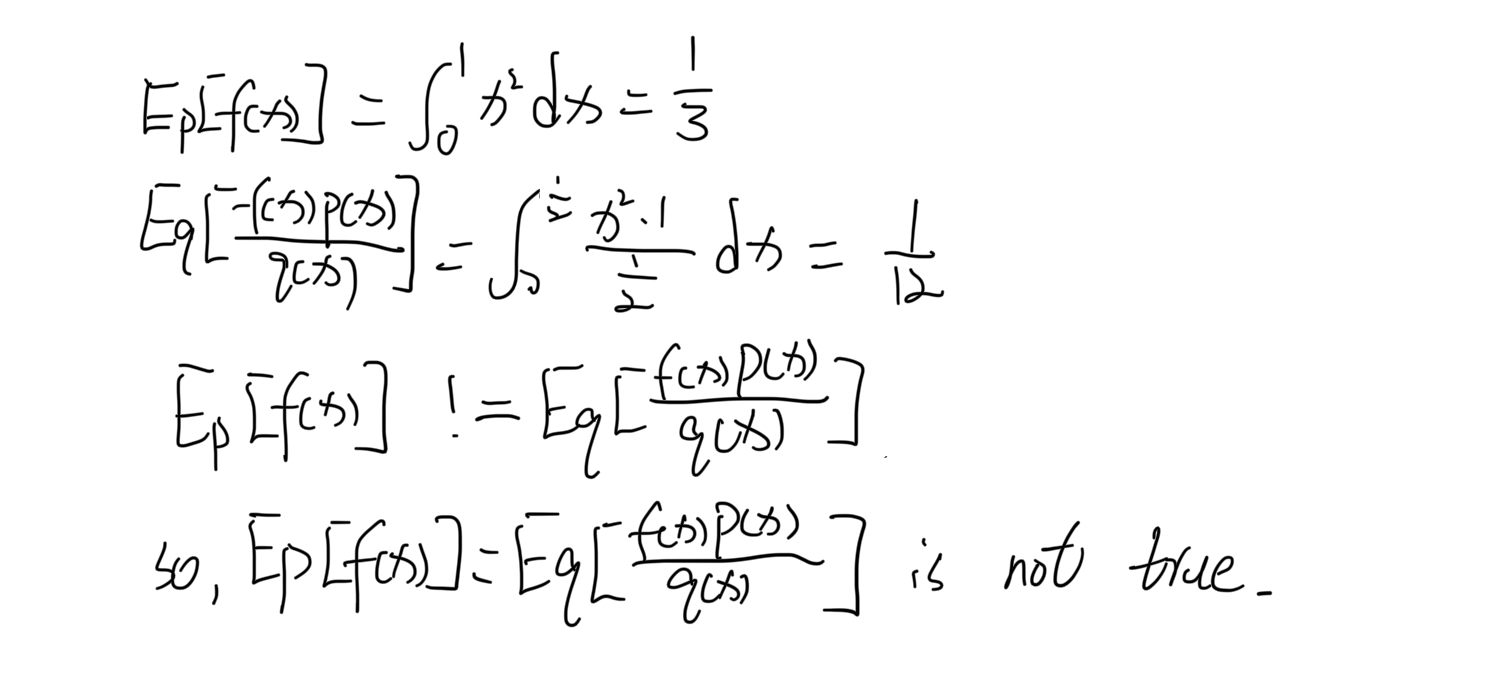 Ep[f(x)] = ∫₀¹ x² dx = 1/3
Eq[f(x)p(x)/q(x)] = ∫₀^(1/2) (x²·1)/(1/2) dx = 1/12
Ep[f(x)] != Eq[f(x)p(x)/q(x)]
so, Ep[f(x)] = Eq[f(x)p(x)/q(x)] is not true.